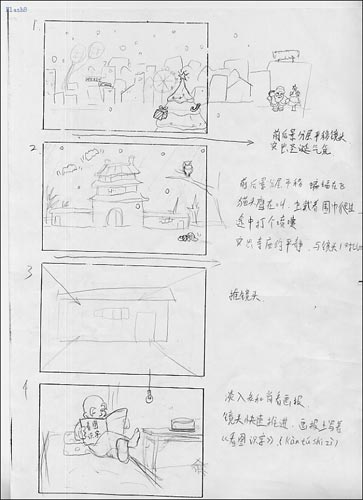 1.
前后景分层平移镜头
突出圣诞气氛
2.
前后景分层平移 蝙蝠在飞
猫头鹰在叫
途中打个喷嚏
突出寺庙的平静，与镜头1对比
3
推镜头
4
淡入 看画报
镜头快速推进，画报上写着
《看图识字》(kàn tú shí zì)
看图
识字